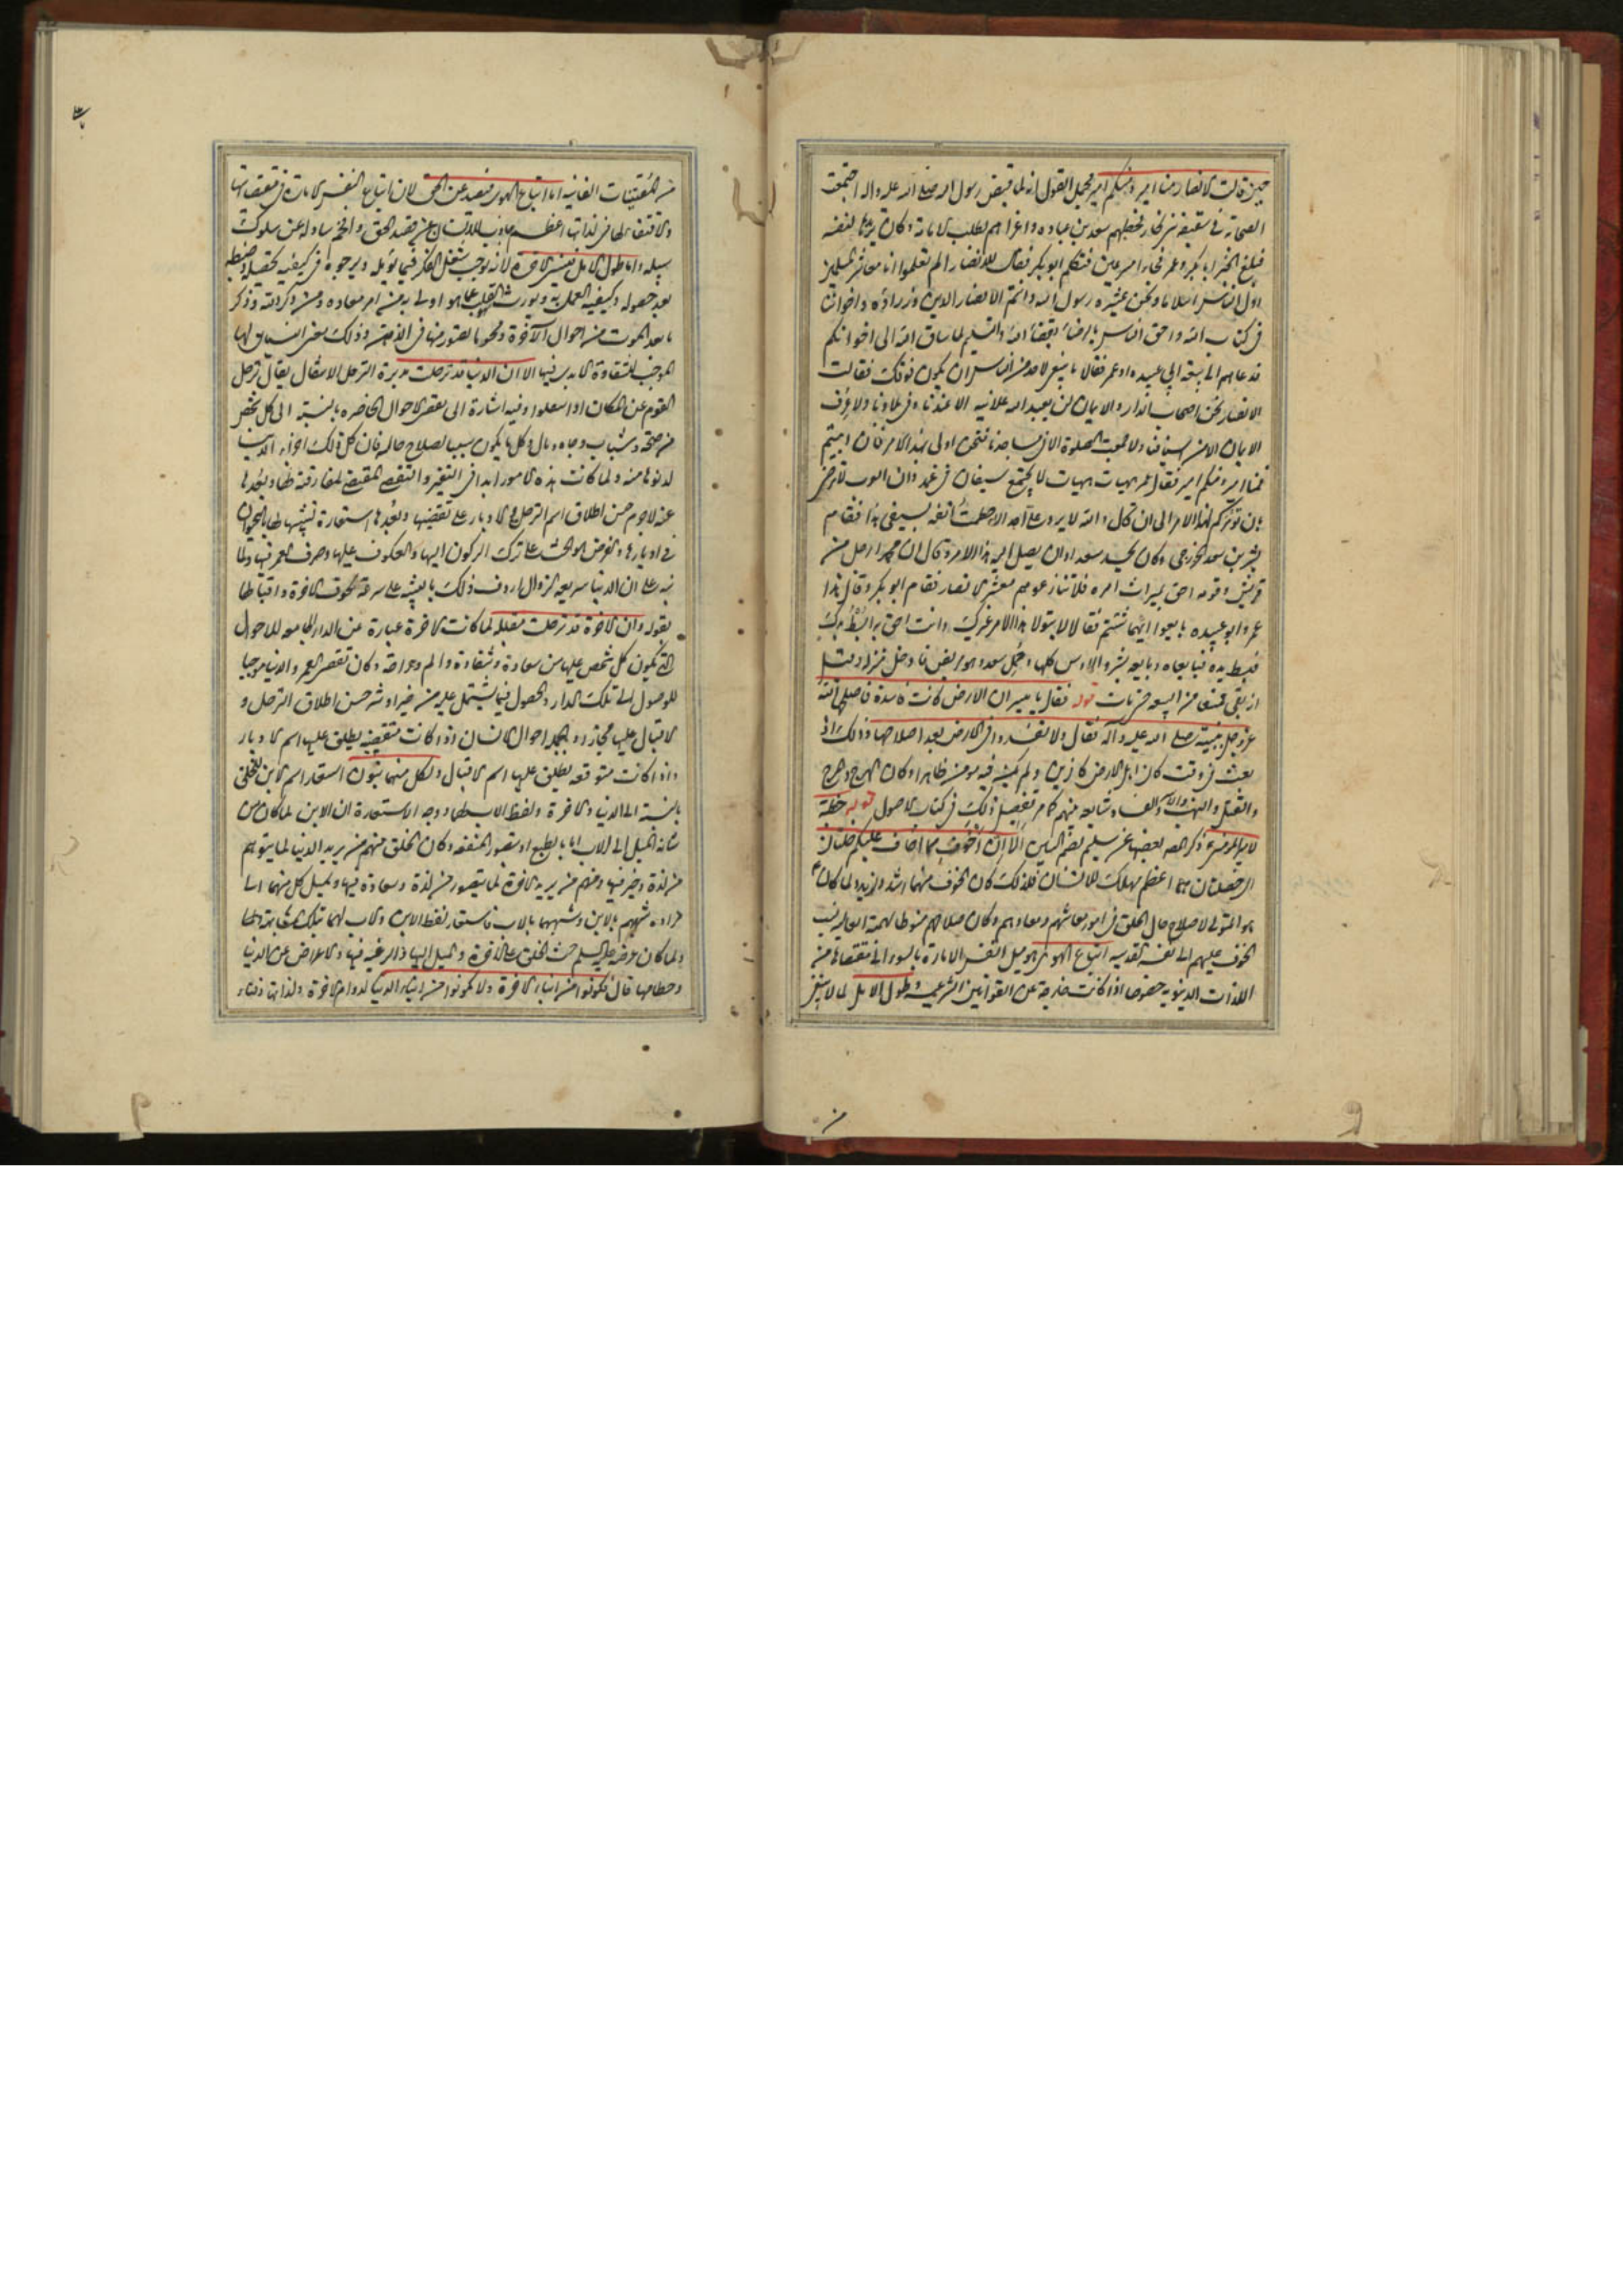 حين قالت الانصار منا امير ومنكم امير مجمل القول انه لما قبض رسول الله صلى الله عليه واله اجتمعت
الصحابة في سقيفة بنى نجار فخطبهم سعد بن عباده واغراهم بطلب الامامة وكان يريدها لنفسه
فبلغ الخبر ابا بكر وعمر فجاءا مسرعين فتكلم ابو بكر فقال للانصار الم تعلموا انا معاشر المسلمين
اول الناس اسلاما ونحن عشيره رسول الله وانتم الانصار الدين ووزراؤه واخواننا
فى كتاب الله واحق الناس بالرضا بقضاء الله والتسليم لما ساق الله الى اخوانكم
فدعاهم الى بيعة ابى عبيده او عمر فقالا ما ينبغى لاحد من الناس ان يكون فوقك فقالت
الانصار نحن اصحاب الدار والايمان لن يعبد الله علانيه الا عندنا وفى بلادنا ولا عرف
الايمان الا من اسيافنا ولا جمعت الصلوة الا فى مساجدنا فنحن اولى بهذا الامر فان ابيتم
فمنا امير ومنكم امير فقال عمر هيهات هيهات لا يجتمع سيفان فى غمد وان العرب لا ترضى
بان تؤمركم لهذا الامر الى ان قال والله لا يرد على احد الا حطمت انفه بسيفى هذا فقام
بشر بن سعد الخزرجى وكان يحسد سعدا ان يصل اليه هذا الامر وقال ان محمدا رجل من
قريش وقومه احق بميراث امره فلا تنازعوهم معشر الانصار فقام ابو بكر وقال هذا
عمر وابو عبيده بايعوا ايهما شئتم فقالا لا يتولا هذا الامر غيرك وانت احق به ابسط يدك
فبسط يده فبايعاه وبايعه بشر والاوس كلها وحمل سعد وهو مريض فادخل منزله وقيل
انه بقى ممتنعا من البيعه حتى مات قوله فقال يا ميسر ان الارض كانت فاسدة فاصلحها الله
عز وجل بنبيه صلى الله عليه وآله فقال ولا تفسدوا فى الارض بعد اصلاحها وذلك اذ
بعث فى وقت كان اهل الارض كافرين ولم يكن فيه مؤمن ظاهرا وكان الهرج والمرج
والقتل والنهب والاسر والفساد شايعه منهم كما مر تفصيل ذلك فى كتاب الاصول قوله خطبة
لامير المؤمنين ذكر السيد بعضها عن سليم بضم السين الا ان اخوف ما اخاف عليكم خلتان
اى خصلتان هما اعظم مهلك للانسان فلذلك كان الخوف منهما اشد وازيد ولما كان ع
هو المتولى لاصلاح حال الخلق فى امور معاشهم ومعادهم وكان صلاحهم منوطا بهمته العاليه نسب
الخوف عليهم الى نفسه القدسيه اتباع الهوى هو ميل النفس الامارة بالسوء الى مقتضاها من
اللذات الدنيويه خصوصا اذا كانت خارجة عن القوانين الشرعيه وطول الامل لما لا ينبغى
من المقتنيات الفانيه اما اتباع الهوى فيصد عن الحق لان اتباع النفس الامارة فى مقتضياتها
والاقتفاء لها فى لذاتها اعظم جاذب للانسان عن قصد الحق وافخم ساد له عن سلوك
سبيله واما طول الامل فينسى الاخرة لانه يوجب شغل الفكر فيما يؤمله ويرجوه فى كيفيه تحصيله وضبطه
بعد حصوله وكيفية العمل به ويورث شغل القلب عما هو اولى به من امر معاده ومن ذكر الله وذكر
ما بعد الموت من احوال الآخرة ومحو ما يتصور منها فى الذهن وذلك معنى النسيان لها
الموجب للشقاوة الابديه فيها الا ان الدنيا قد ترحلت مدبرة الترحل الانتقال يقال ترحل
القوم عن المكان اذا انتقلوا وفيه اشارة الى تقضى الاحوال الحاضره بالنسبة الى كل شخص
من صحة وشباب وجاه ومال وكل ما يكون سببا لصلاح حاله فان كل ذلك اجزاء الدنيا
لدنوها منه ولما كانت هذه الامور ابدا فى التغير والتقضى المقتضى لمفارقته لها وبعدها
عنه لاجرم حسن اطلاق اسم الترحل والادبار على تقضيها وبعدها استعارة تشبيها لها بالحيوان
فى ادبارها والغرض هو الحث على ترك الركون اليها والعكوف عليها وصرف العمر فيها ولما
نبه على ان الدنيا سريعه الزوال اردف ذلك بالتنبيه على سرعة لحوق الاخرة واقبالها
بقوله وان الاخرة قد ترحلت مقبله لما كانت الاخرة عبارة عن الدار الجامعه للاحوال
التى يكون كل شخص عليها من سعادة وشقاوة والم وراحة وكان تقضى العمر والدنيا موجبا
للوصول الى تلك الدار والحصول فيما يشتمل عليه من خير او شر حسن اطلاق الترحل و
الاقبال عليها مجازا وبالجملة احوال الانسان اذا كانت منقضيه يطلق عليها اسم الادبار
واذا كانت متوقعه يطلق عليها اسم الاقبال ولكل منهما بنون استعار اسم الابن للخلق
بالنسبة الى الدنيا والاخرة ولفظ الاب لهما ووجه الاستعارة ان الابن لما كان من
شانه الميل الى الاب اما بالطبع او بتصور المنفعه وكان الخلق منهم من يريد الدنيا لما يتوهم
من لذة وخير فيها ومنهم من يريد الاخرة لما يتصور من لذة وسعادة فيها ويميل كل منهما الى
مراده شبههم بالابن وشبههما بالاب فاستعار لفظ الابن والاب لهما بتلك المشابهة ولما
ولما كان غرضه عليه السلم حث الخلق على الآخرة والميل اليها والرغبه فيها والاعراض عن الدنيا
وحطامها قال فكونوا من ابناء الاخرة ولا تكونوا من ابناء الدنيا لدوام الاخرة ولذاتها وفناء